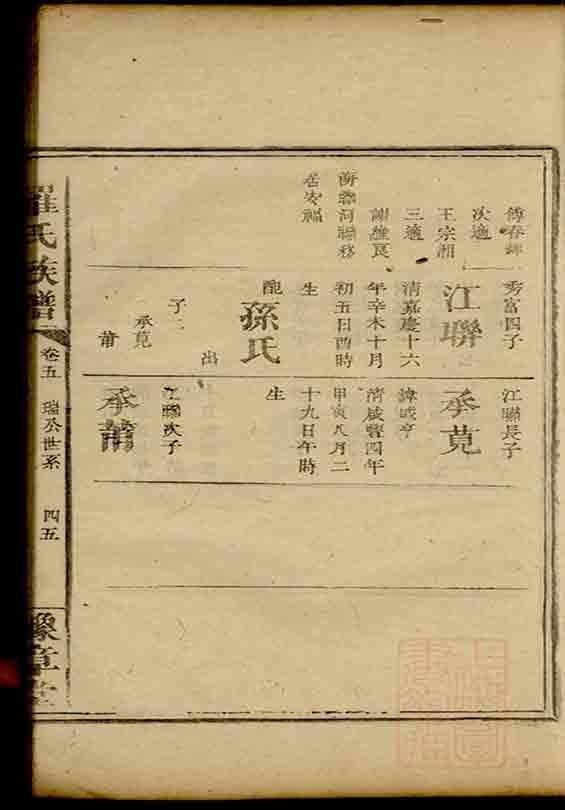 傅春
次適
王宗湘
三適
謝維良
衡聯河聯移
居安福
秀富四子
江聯
清嘉慶十六
年辛未十月
初五日酉時
生
配
孫氏
出
子二
承莧
莆
江聯長子
承莧
諱咸亨
清咸豐四年
甲寅八月二
十九日午時
生
江聯次子
承莆
羅氏族譜
卷五
瑞公世系
四五
豫章堂